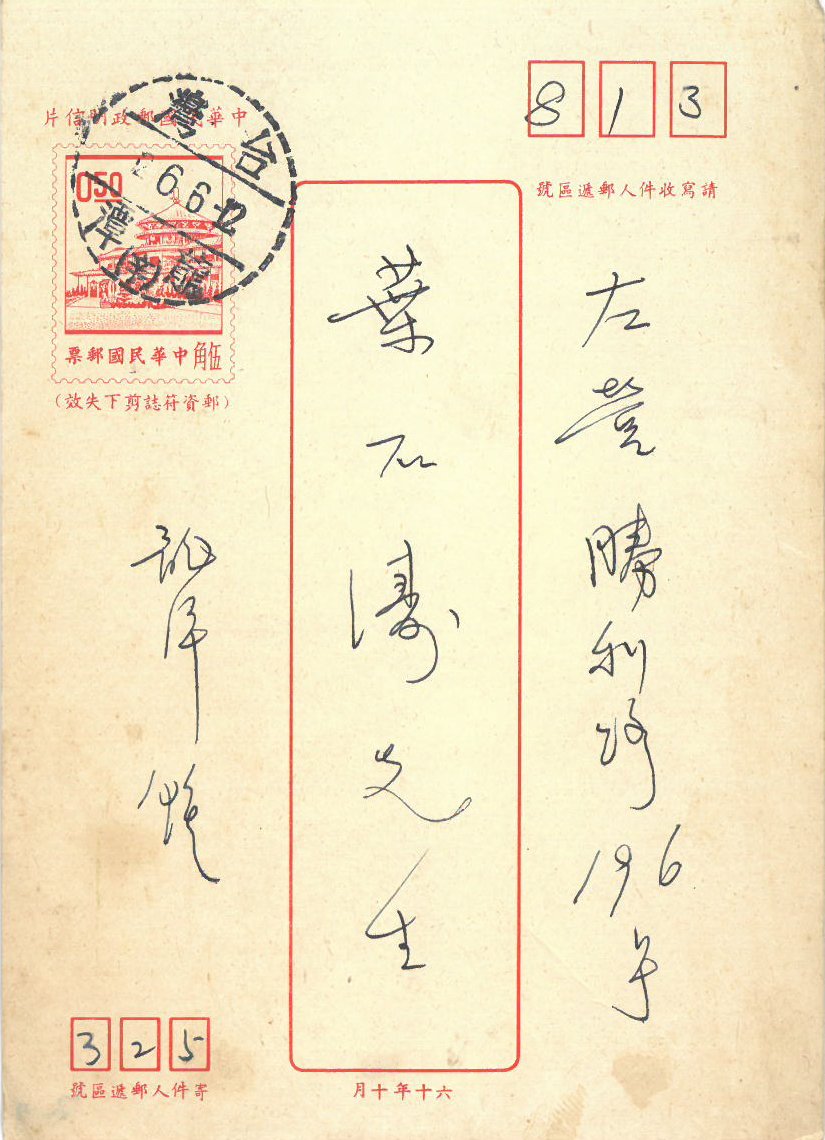 813
請寫收件人郵遞區號
左營勝利路196号
葉石濤先生
龍潭鍾
中華民國郵政明信片
0.50
伍角中華民國郵票
(郵資符誌剪下失效)
台灣
龍潭
325
寄件人郵遞區號
六十年十月